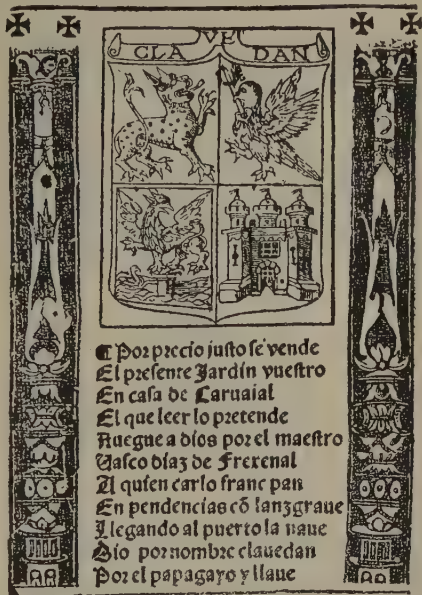 CLA VE DAN
¶ Por precio justo se vende
El presente Jardín vuestro
En casa de Caruaial
El que leer lo pretende
Ruegue a dios por el maestro
Vasco díaz de Frexenal
A quien carlo franc pan
En pendencias cõ lanzgraue
Llegando al puerto la naue
Dio por nombre clauedan
Por el papagayo y llaue